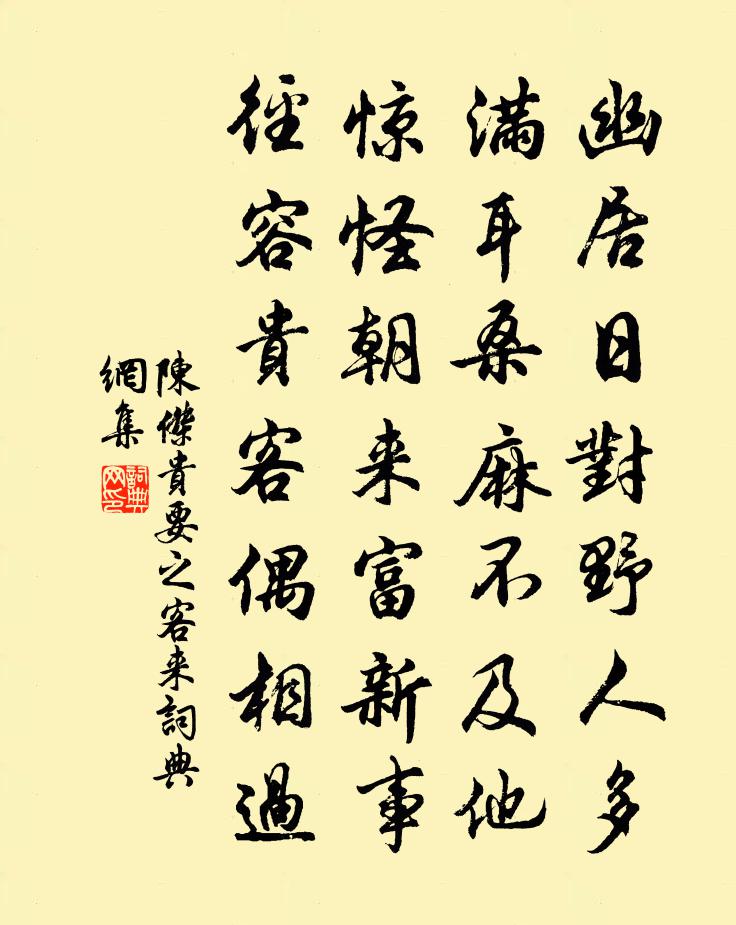 幽居日對野人多
滿耳桑麻不及他
惊怪朝来富新事
徑容貴客偶相過
陳傑貴要之客来詞典
網集
詞典網印